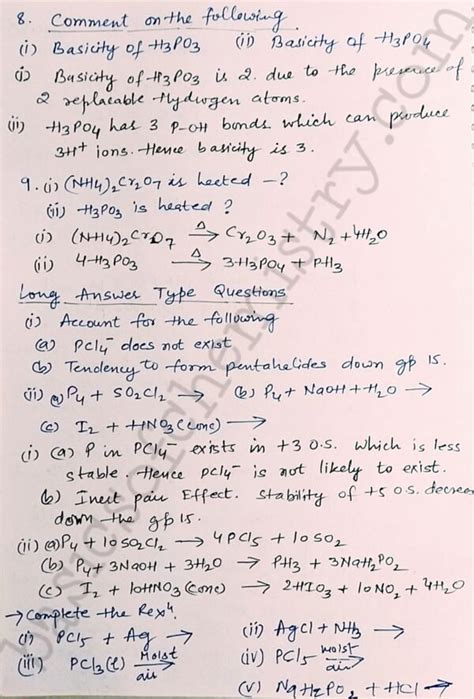 8. Comment on the following
(i) Basicity of H3PO3 (ii) Basicity of H3PO4
(i) Basicity of H3PO3 is 2. due to the presence of
2 replacable Hydrogen atoms.
(ii) H3PO4 has 3 P-OH bonds which can produce
3H+ ions. Hence basicity is 3.
9. (i) (NH4)2Cr2O7 is heated —?
(ii) H3PO3 is heated ?
(i) (NH4)2CrO7 —Δ→ Cr2O3 + N2 + 4H2O
(ii) 4H3PO3 —Δ→ 3H3PO4 + PH3
Long Answer Type Questions
(i) Account for the following
(a) PCl4- does not exist
(b) Tendency to form pentahelides down gp 15.
(ii) (a) P4 + SO2Cl2 → (b) P4 + NaOH + H2O →
(c) I2 + HNO3 (conc) →
(i) (a) P in PCl4- exists in +3 O.S. which is less
stable. Hence PCl4- is not likely to exist.
(b) Inert pair Effect. Stability of +5 O.S. decrea
down the gp 15.
(ii) (a) P4 + 10SO2Cl2 → 4PCl5 + 10SO2
(b) P4 + 3NaOH + 3H2O → PH3 + 3NaH2PO2
(c) I2 + 10HNO3 (conc) → 2HIO3 + 10NO2 + 4H2O
→ Complete the Rexn.
(i) PCl5 + Ag → (ii) AgCl + NH3 →
(iii) PCl3(l) —moist air→ (iv) PCl5 —moist air→
(v) NaH2PO2 + HCl →
basicsofchemistry.com